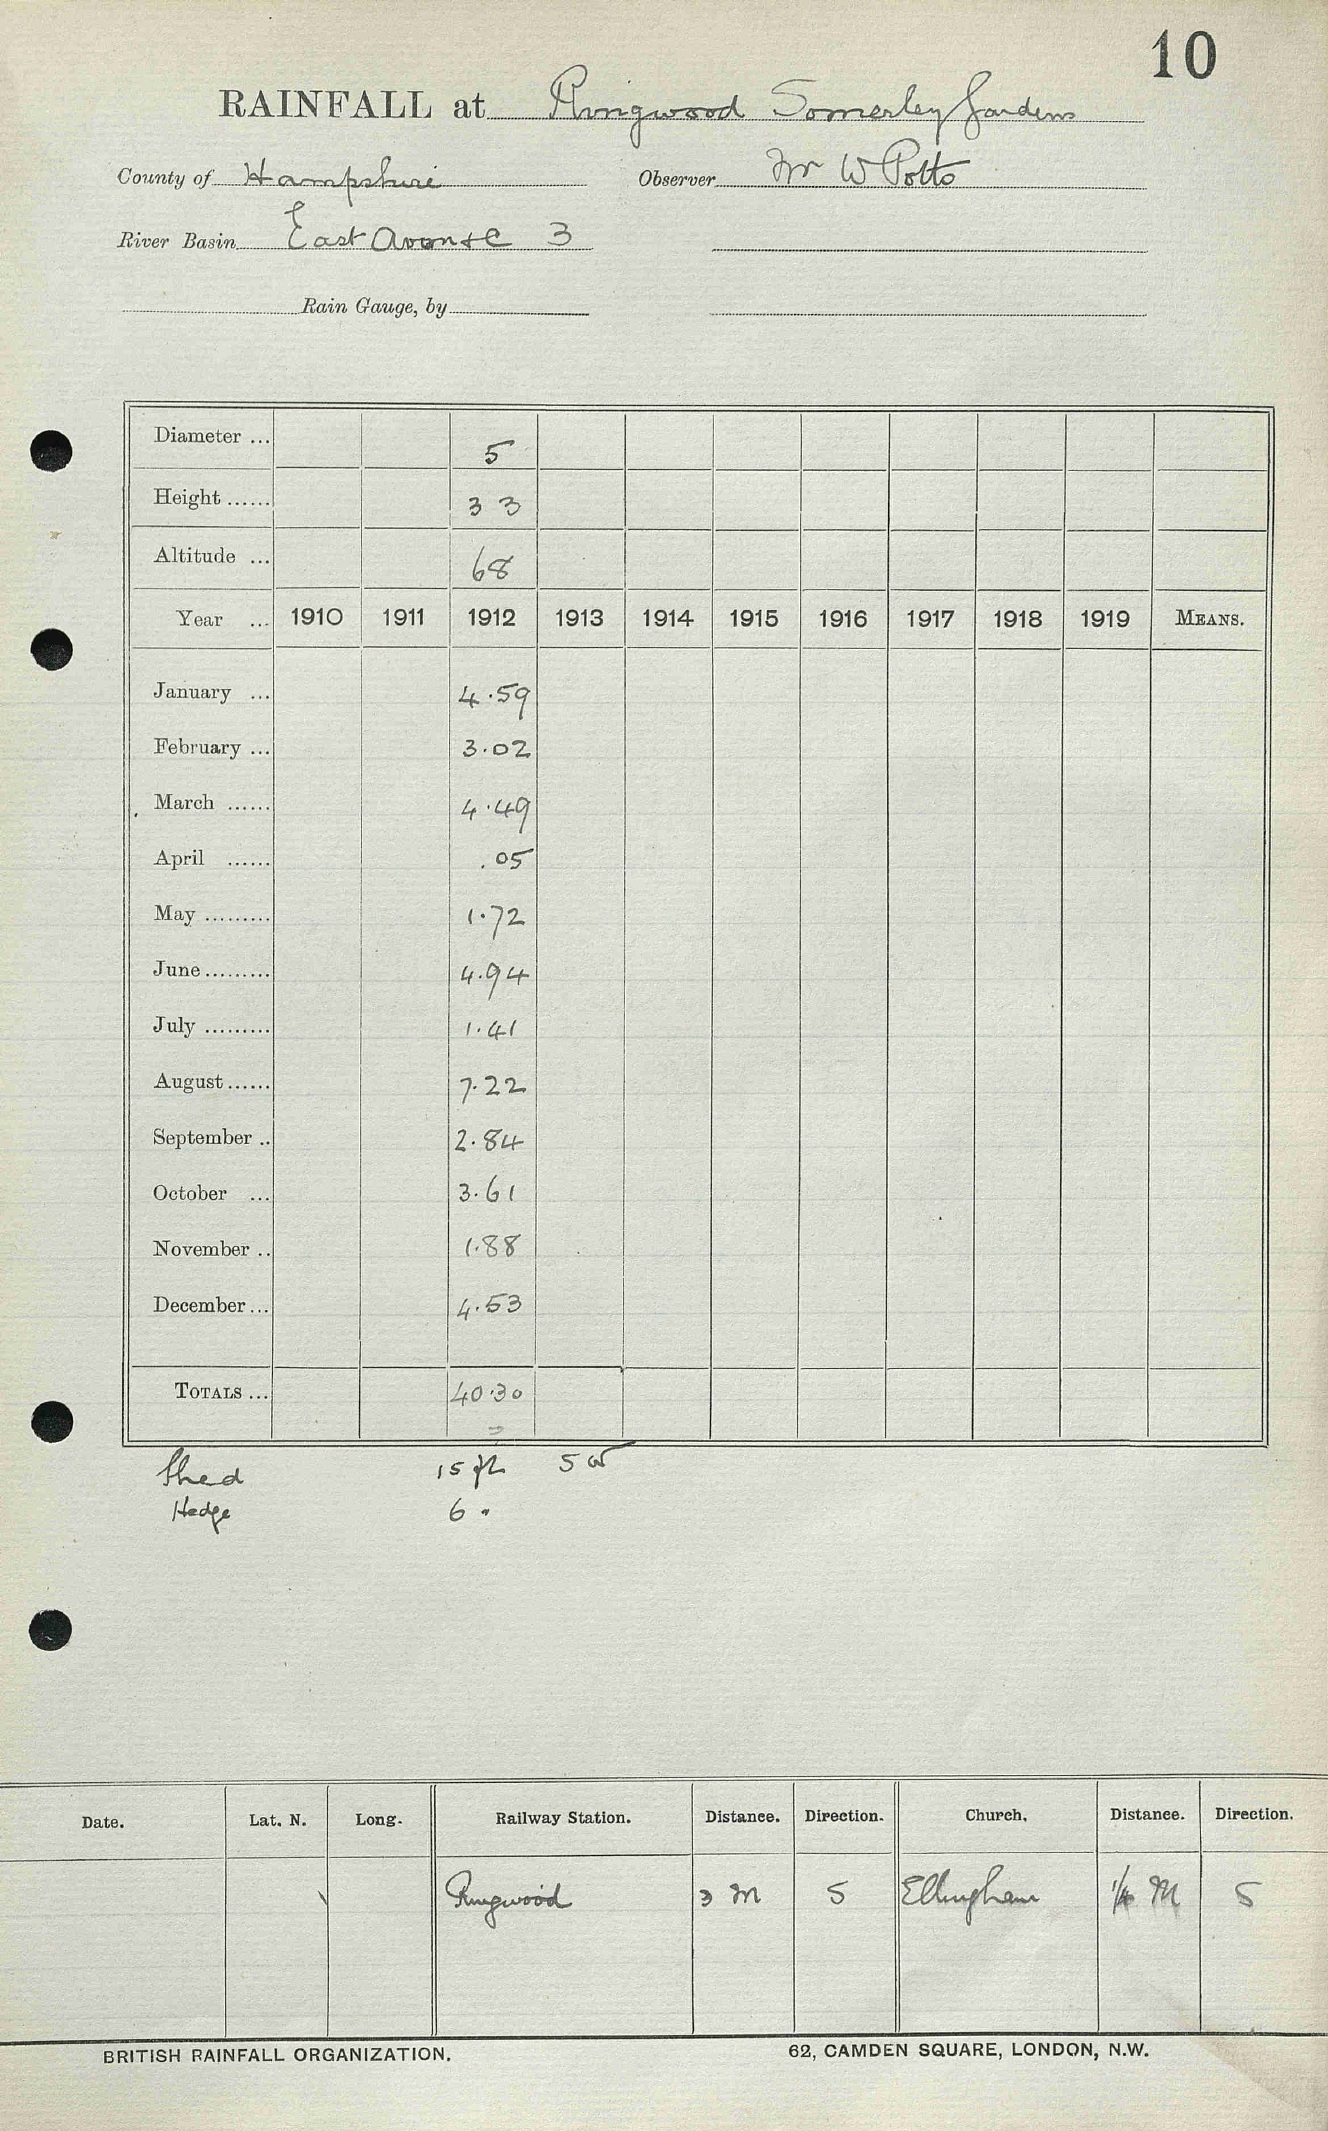 10
RAINFALL at Ringwood Somerley Gardens
County of Hampshire Observer Mr W Potts
River Basin East Avon &c 3
Rain Gauge, by
Diameter ... 5
Height ...... 3 3
Altitude ... 68
Year ... 1910 1911 1912 1913 1914 1915 1916 1917 1918 1919 MEANS.
January ... 4.59
February ... 3.02
March ...... 4.49
April ...... .05
May ......... 1.72
June ......... 4.94
July ......... 1.41
August ...... 7.22
September .. 2.84
October ... 3.61
November .. 1.88
December ... 4.53
TOTALS ... 40.30
Shed 15 ft 5 W
Hedge 6 "
Date. Lat. N. Long. Railway Station. Distance. Direction. Church. Distance. Direction.
Ringwood 3 M S Ellingham 1/4 M S
BRITISH RAINFALL ORGANIZATION. 62, CAMDEN SQUARE, LONDON, N.W.